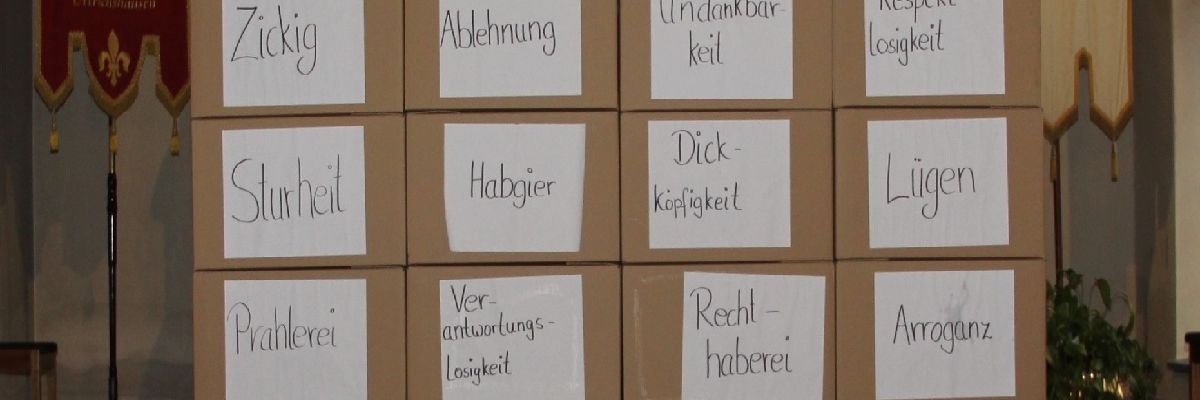 Zickig
Ablehnung
Undankbar-
keit
Respekt
losigkeit
Sturheit
Habgier
Dick-
köpfigkeit
Lügen
Prahlerei
Ver-
antwortungs-
losigkeit
Recht-
haberei
Arroganz